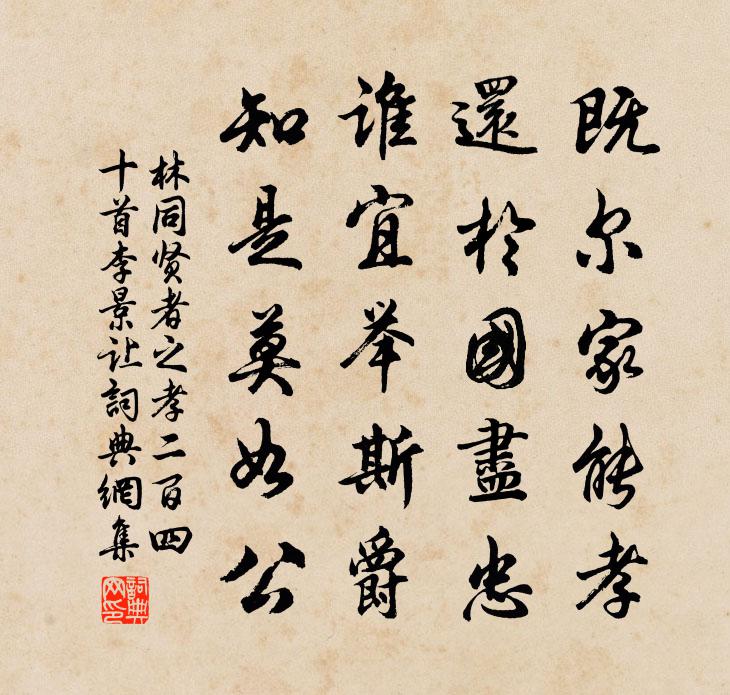 既尔家能孝
還於國盡忠
誰宜举斯爵
知是莫如公
林同贤者之孝二百四
十首李景让詞典網集
詞典
网印